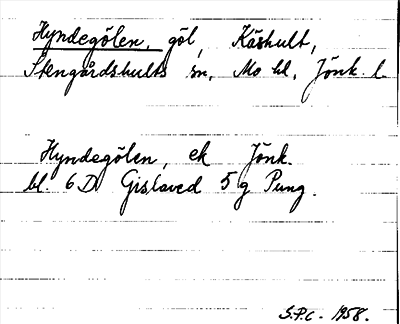 Hyndegölen, göl, Käshult,
Stengårdshults sn, Mo hd, Jönk. l.
Hyndegölen, ek Jönk.
bl. 6D Gislaved 5 g Pung.
S.P.C. - 1958.